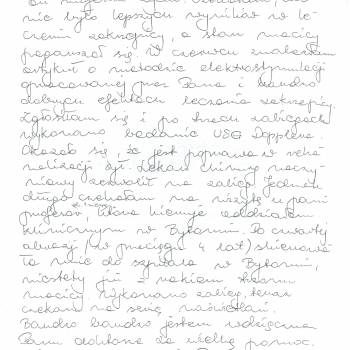 nic było lepszych wyników w le-
czeniu zakrzepicy, a stan macicy
pogarszał się. W czerwcu znalazłam
artykuł o metodzie elektrostymulacji
opracowanej przez Pana i bardzo
dobrych efektach leczenia zakrzepicy.
Zgłosiłam się i po trzech zabiegach
wykonano badanie USG Dopplera.
Okazało się że jest poprawa w reka-
nalizacji żył. Lekarz chirurg naczy-
niowy zezwolił na zabieg jednak
długo czekałam na wizytę u pani
profesor, która kieruje oddziałem
klinicznym w Bytomiu. Do czwartej
(w przeciągu 4 lat) skierowa-
ła mnie do szpitala w Bytomiu,
niestety już z rakiem trzonu
macicy. Wykonano zabieg, teraz
czekam na serię naświetlań.
Bardzo bardzo jestem wdzięczna
Panu doktorze za wielką pomoc.